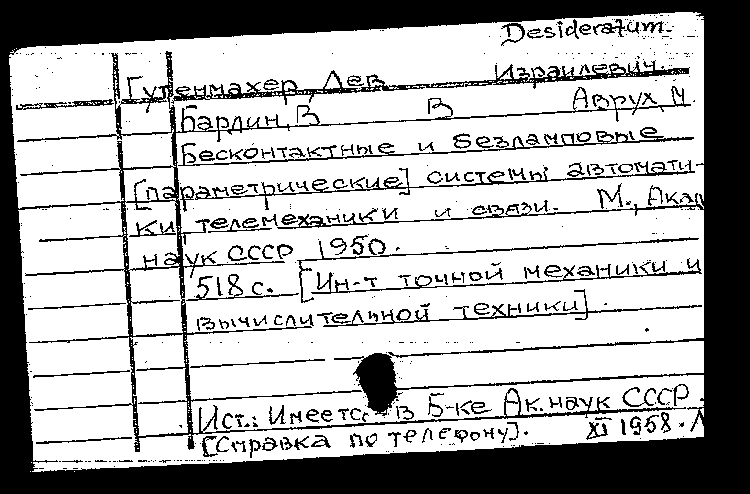 Desideratum.
Гутенмахер, Лев Израилевич.
Бардин, В В Аврух, М
Бесконтактные и безламповые
[параметрические] системы автомати-
ки, телемеханики и связи. М., Акад
наук СССР 1950.
518 с. [Ин-т точной механики и
вычислительной техники].
Ист.: Имеетс в Б-ке Ак. наук СССР.
[Справка по телефону]. XI 1958. Л